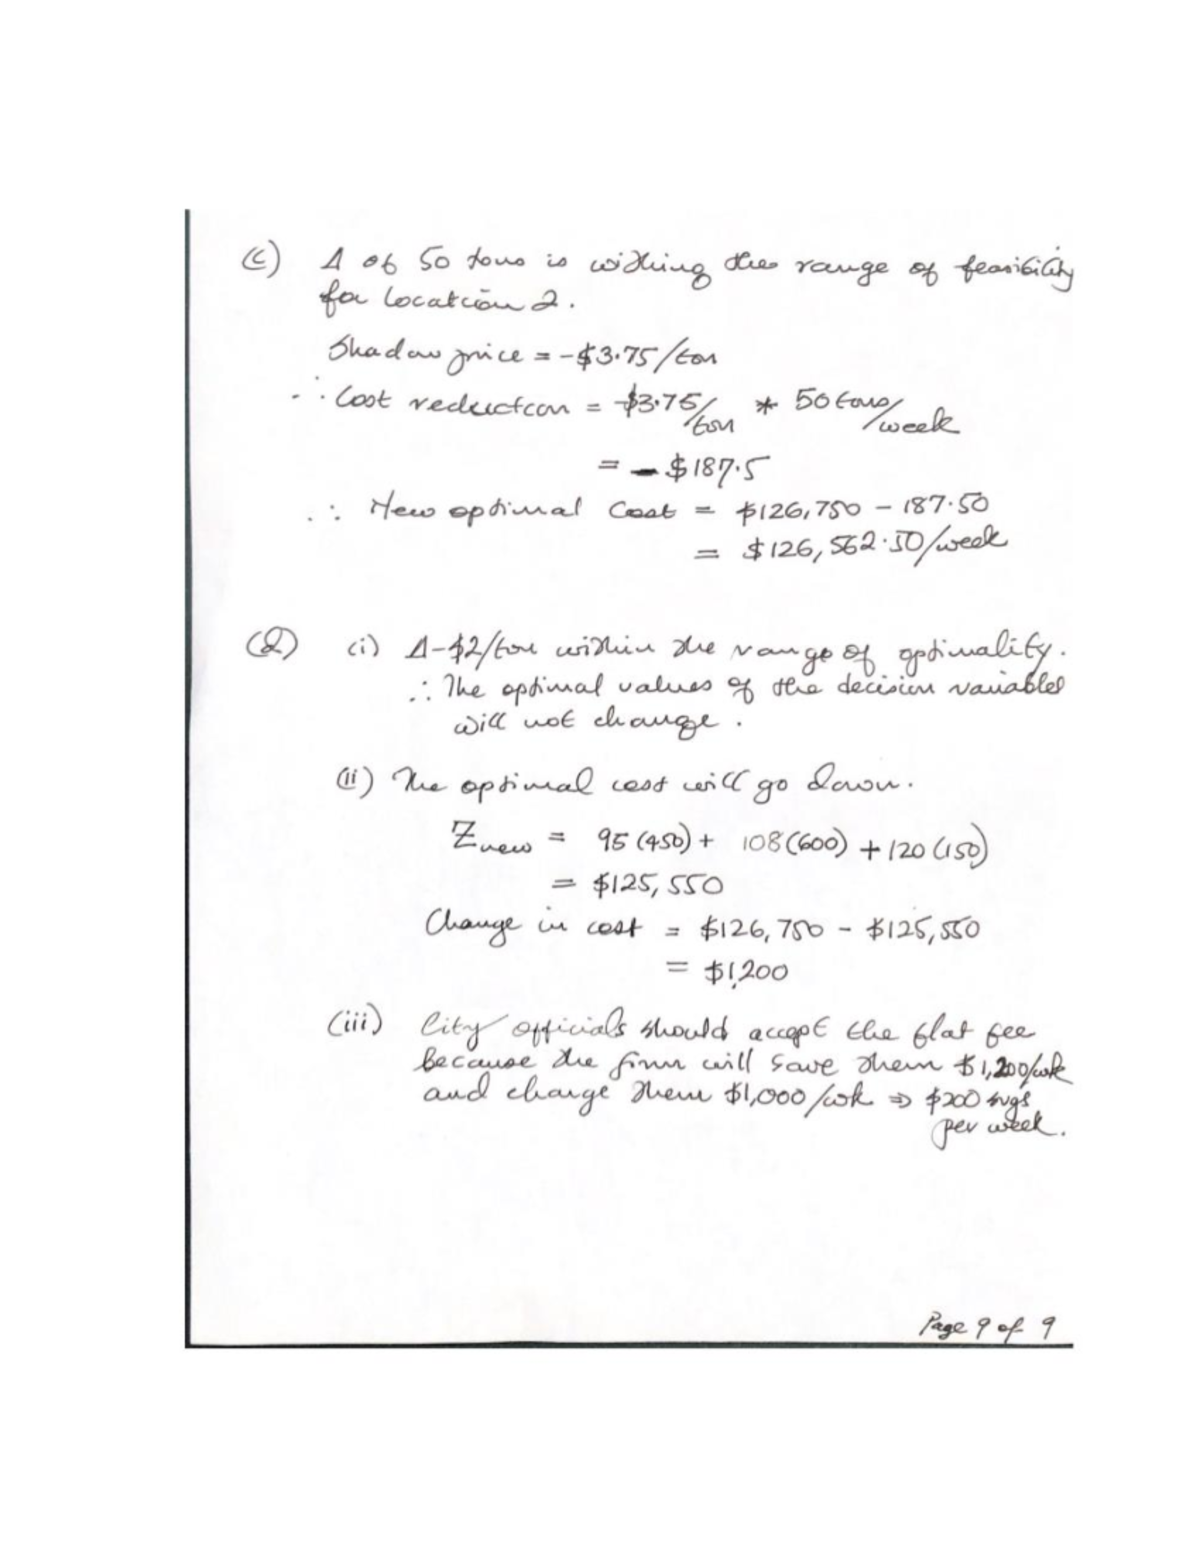 (c) Δ of 50 tons is withing the range of feasibility
for location 2.
Shadow price = -$3.75/ton
∴ Cost reduction = -$3.75/ton * 50 tons/week
= -$187.5
∴ New optimal Cost = $126,750 - 187.50
= $126,562.50/week
(d) (i) Δ-$2/ton within the range of optimality.
∴ The optimal values of the decision variables
will not change.
(ii) The optimal cost will go down.
Znew = 95(450) + 108(600) + 120(150)
= $125,550
Change in cost = $126,750 - $125,550
= $1,200
(iii) City officials should accept the flat fee
because the firm will save them $1,200/wk
and charge them $1,000/wk ⇒ $200 svgs
per week.
Page 9 of 9